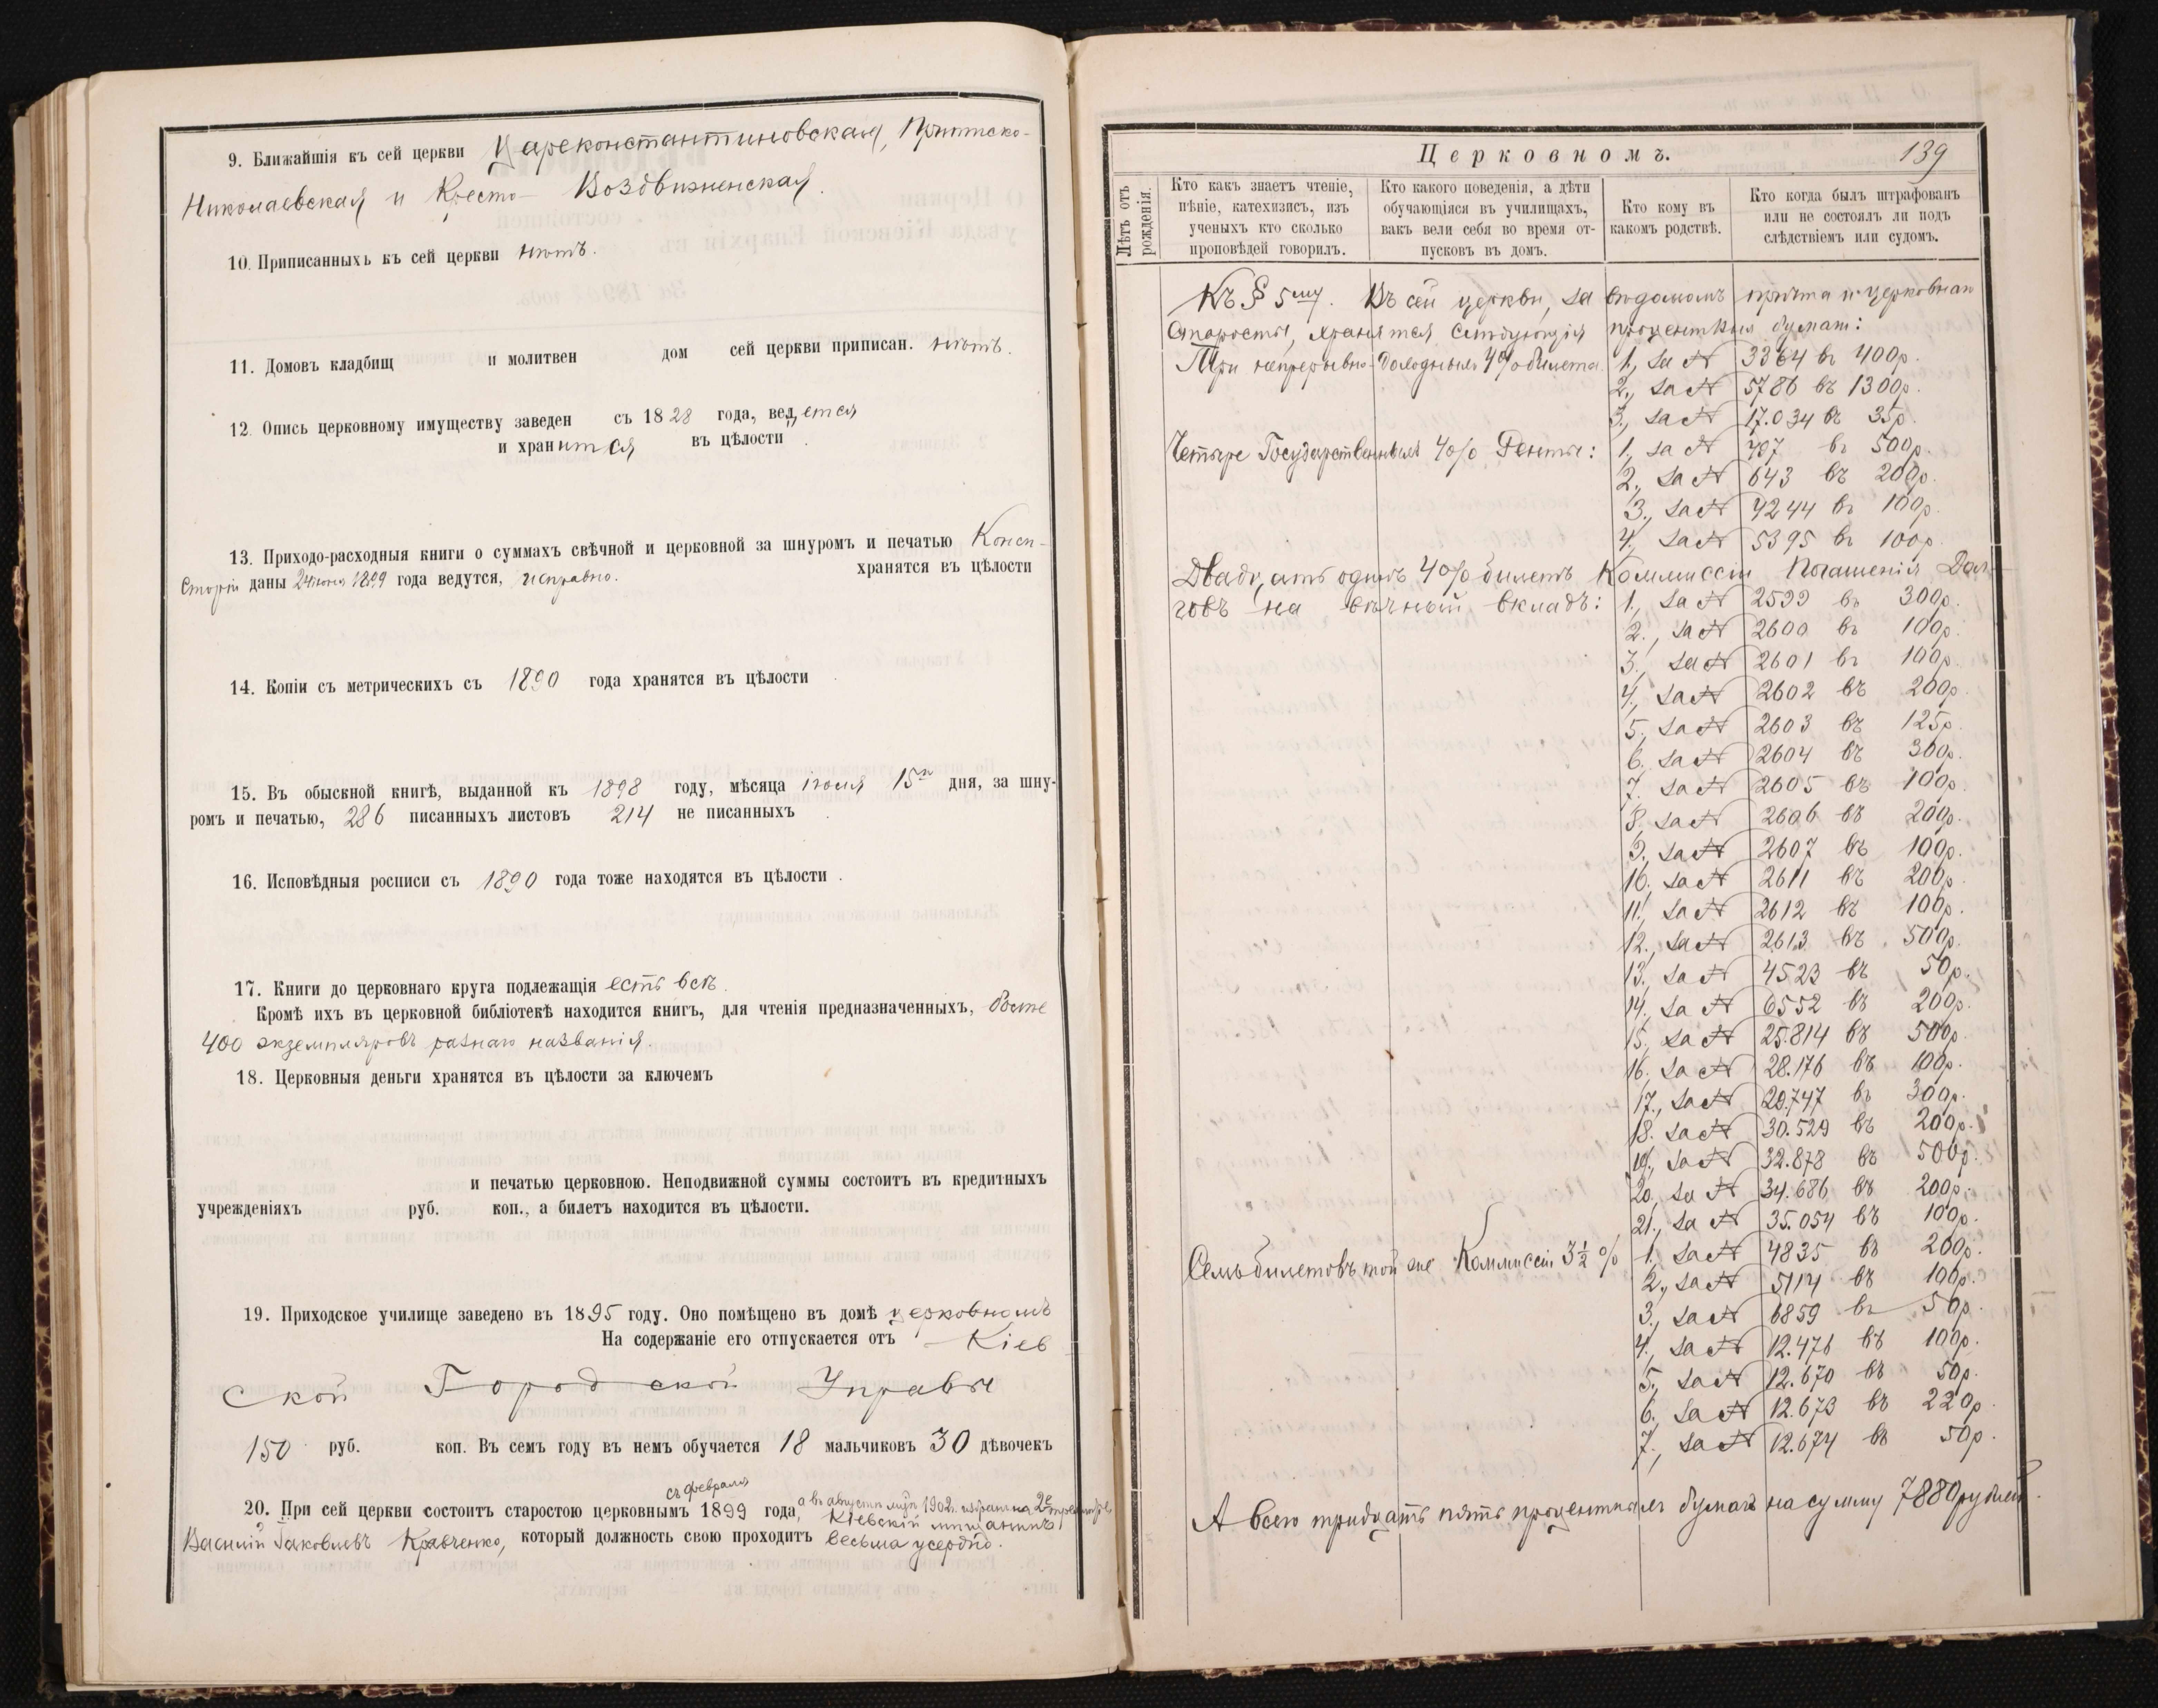 9. Ближайшія къ сей церкви Цареконстантиновская, Притиско-
Николаевская и Кресто-Воздвиженская.
10. Приписанныхъ къ сей церкви нѣтъ.
11. Домовъ кладбищ и молитвен дом сей церкви приписан. нѣтъ.
12. Опись церковному имуществу заведен съ 1828 года, ведется
и хранится въ цѣлости
13. Приходо-расходныя книги о суммахъ свѣчной и церковной за шнуромъ и печатью Конси-
сторіи даны 24 1899 года ведутся, исправно. хранятся въ цѣлости
14. Копіи съ метрическихъ съ 1890 года хранятся въ цѣлости
15. Въ обыскной книгѣ, выданной къ 1898 году, мѣсяца іюля 15го дня, за шну-
ромъ и печатью, 286 писанныхъ листовъ 214 не писанныхъ
16. Исповѣдныя росписи съ 1890 года тоже находятся въ цѣлости.
17. Книги до церковнаго круга подлежащія есть всѣ.
Кромѣ ихъ въ церковной библіотекѣ находится книгъ, для чтенія предназначенныхъ, болѣе
400 экземпляровъ разнаго названія.
18. Церковныя деньги хранятся въ цѣлости за ключемъ
и печатью церковною. Неподвижной суммы состоитъ въ кредитныхъ
учрежденіяхъ руб. коп., а билетъ находится въ цѣлости.
19. Приходское училище заведено въ 1895 году. Оно помѣщено въ домѣ церковномъ
На содержаніе его отпускается отъ Кіев
ской Городской Управы
150 руб. коп. Въ семъ году въ немъ обучается 18 мальчиковъ 30 дѣвочекъ
съ февраля
20. При сей церкви состоитъ старостою церковнымъ 1899 года, а въ августѣ 1902 г. избранъ на 2е трехлѣтіе,
Кіевскій мѣщанинъ
Василій Іаковлевъ Кравченко, который должность свою проходитъ весьма усердно.
Церковномъ. 139
Лѣтъ отъ рожденія.
Кто какъ знаетъ чтеніе, пѣніе, катехизисъ, изъ ученыхъ кто сколько проповѣдей говорилъ.
Кто какого поведенія, а дѣти обучающіяся въ училищахъ, вакъ вели себя во время отпусковъ въ домъ.
Кто кому въ какомъ родствѣ.
Кто когда былъ штрафованъ или не состоялъ ли подъ слѣдствіемъ или судомъ.
Къ § 5му. Въ сей церкви, за вѣдомомъ причта и церковнаго
старосты, хранятся слѣдующія процентныя бумаги:
Три непрерывно-доходныхъ 4% билета 1., за № 3364 въ 400р.
2., за № 5786 въ 1300р.
3., за № 17.034 въ 35р.
Четыре Государственныхъ 4% Ренты: 1., за № 707 въ 500р.
2., за № 643 въ 200р.
3., за № 4244 въ 100р.
4., за № 5395 въ 100р.
Двадцать одинъ 4% билетъ Коммиссіи Погашенія Дол-
говъ на вѣчный вкладъ: 1., за № 2599 въ 300р.
2., за № 2600 въ 100р.
3., за № 2601 въ 100р.
4., за № 2602 въ 200р.
5., за № 2603 въ 125р.
6., за № 2604 въ 300р.
7. за № 2605 въ 100р.
8. за № 2606 въ 200р.
9. за № 2607 въ 100р.
10. за № 2611 въ 200р.
11., за № 2612 въ 100р.
12., за № 2613 въ 500р.
13., за № 4523 въ 50р.
14., за № 6552 въ 200р.
15., за № 25.814 въ 500р.
16. за № 28.176 въ 100р.
17., за № 29.747 въ 300р.
18. за № 30.529 въ 200р.
19., за № 32.878 въ 500р.
20., за № 34.686 въ 200р.
21., за № 35.054 въ 100р.
Семь билетовъ той же Коммиссіи 3½ % 1. за № 4835 въ 200р.
2., за № 5114 въ 100р.
3., за № 6859 въ 50р.
4., за № 12.476 въ 100р.
5., за № 12.670 въ 50р.
6. за № 12.673 въ 220р.
7., за № 12.674 въ 50р.
А всего тридцать пять процентныхъ бумагъ на сумму 7880 рублей.